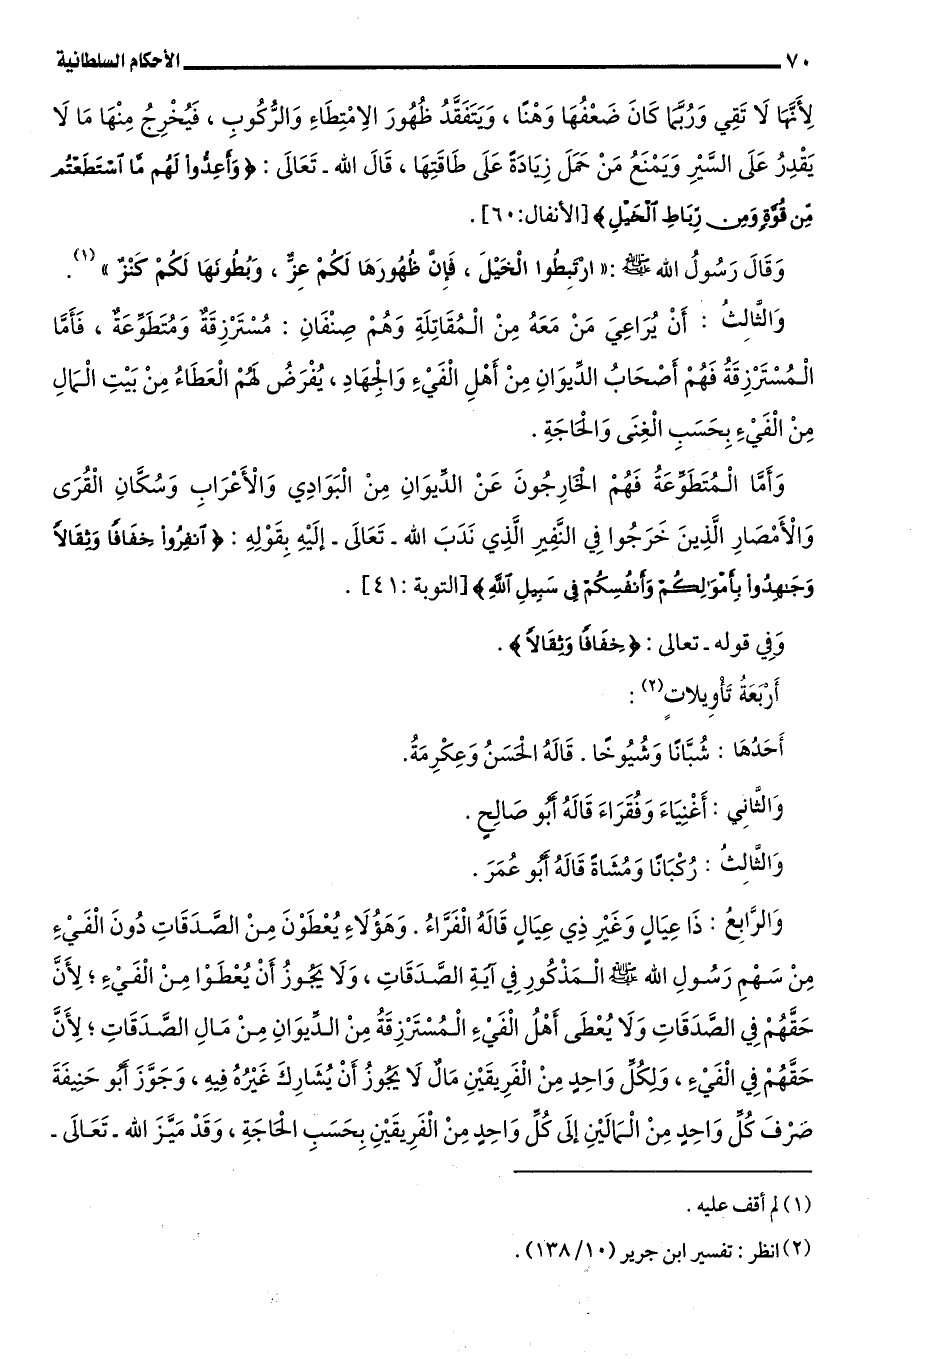 ٧٠ الأحكام السلطانية
لِأَنَّهَا لَا تَقِي وَرُبَّمَا كَانَ ضَعْفُهَا وَهْنًا ، وَيَتَفَقَّدُ ظُهُورَ الِامْتِطَاءِ وَالرُّكُوبِ ، فَيُخْرِجُ مِنْهَا مَا لَا
يَقْدِرُ عَلَى السَّيْرِ وَيَمْنَعُ مَنْ حَمَلَ زِيَادَةً عَلَى طَاقَتِهَا ، قَالَ الله ـ تَعَالَى : ﴿ وَأَعِدُّواْ لَهُم مَّا ٱسْتَطَعْتُم
مِّن قُوَّةٍ وَمِن رِّبَاطِ ٱلْخَيْلِ ﴾ [الأنفال:٦٠] .
وَقَالَ رَسُولُ الله ﷺ :« ارْتَبِطُوا الْخَيْلَ ، فَإِنَّ ظُهُورَهَا لَكُمْ عِزٌّ ، وَبُطُونَهَا لَكُمْ كَنْزٌ » (١).
وَالثَّالِثُ : أَنْ يُرَاعِيَ مَنْ مَعَهُ مِنْ الْمُقَاتِلَةِ وَهُمْ صِنْفَانِ : مُسْتَرْزِقَةٌ وَمُتَطَوِّعَةٌ ، فَأَمَّا
الْمُسْتَرْزِقَةُ فَهُمْ أَصْحَابُ الدِّيوَانِ مِنْ أَهْلِ الْفَيْءِ وَالْجِهَادِ ، يُفْرَضُ لَهُمْ الْعَطَاءُ مِنْ بَيْتِ الْمَالِ
مِنْ الْفَيْءِ بِحَسَبِ الْغِنَى وَالْحَاجَةِ .
وَأَمَّا الْمُتَطَوِّعَةُ فَهُمْ الْخَارِجُونَ عَنْ الدِّيوَانِ مِنْ الْبَوَادِي وَالْأَعْرَابِ وَسُكَّانِ الْقُرَى
وَالْأَمْصَارِ الَّذِينَ خَرَجُوا فِي النَّفِيرِ الَّذِي نَدَبَ الله ـ تَعَالَى ـ إلَيْهِ بِقَوْلِهِ : ﴿ ٱنفِرُواْ خِفَافًا وَثِقَالاً
وَجَٰهِدُواْ بِأَمْوَٰلِكُمْ وَأَنفُسِكُمْ فِى سَبِيلِ ٱللَّهِ ﴾ [التوبة :٤١] .
وَفِي قوله ـ تعالى : ﴿ خِفَافًا وَثِقَالاً ﴾ .
أَرْبَعَةُ تَأْوِيلاتٍ (٢) :
أَحَدُهَا : شُبَّانًا وَشُيُوخًا . قَالَهُ الْحَسَنُ وَعِكْرِمَةُ.
وَالثَّانِي : أَغْنِيَاءَ وَفُقَرَاءَ قَالَهُ أَبُو صَالِحٍ .
وَالثَّالِثُ : رُكْبَانًا وَمُشَاةً قَالَهُ أَبُو عُمَرَ .
وَالرَّابِعُ : ذَا عِيَالٍ وَغَيْرِ ذِي عِيَالٍ قَالَهُ الْفَرَّاءُ . وَهَؤُلَاءِ يُعْطَوْنَ مِنْ الصَّدَقَاتِ دُونَ الْفَيْءِ
مِنْ سَهْمِ رَسُولِ الله ﷺ الْمَذْكُورِ فِي آيَةِ الصَّدَقَاتِ ، وَلَا يَجُوزُ أَنْ يُعْطَوْا مِنْ الْفَيْءِ ؛ لِأَنَّ
حَقَّهُمْ فِي الصَّدَقَاتِ وَلَا يُعْطَى أَهْلُ الْفَيْءِ الْمُسْتَرْزِقَةُ مِنْ الدِّيوَانِ مِنْ مَالِ الصَّدَقَاتِ ؛ لِأَنَّ
حَقَّهُمْ فِي الْفَيْءِ ، وَلِكُلِّ وَاحِدٍ مِنْ الْفَرِيقَيْنِ مَالٌ لَا يَجُوزُ أَنْ يُشَارِكَ غَيْرُهُ فِيهِ ، وَجَوَّزَ أَبُو حَنِيفَةَ
صَرْفَ كُلِّ وَاحِدٍ مِنْ الْمَالَيْنِ إلَى كُلِّ وَاحِدٍ مِنْ الْفَرِيقَيْنِ بِحَسَبِ الْحَاجَةِ ، وَقَدْ مَيَّزَ الله ـ تَعَالَى ـ
(١) لم أقف عليه .
(٢) انظر : تفسير ابن جرير (١٣٨/١٠) .